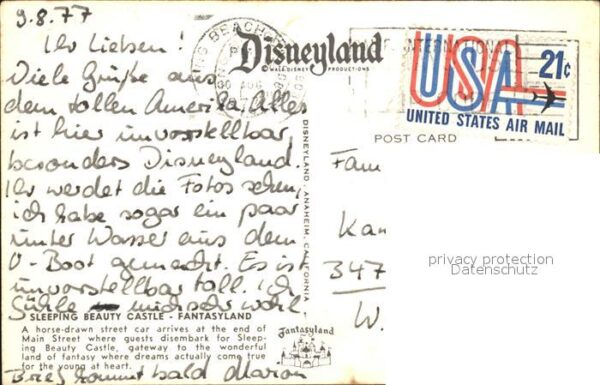 9.8.77
Ihr Lieben!
Viele Grüße aus
dem tollen Amerika. Alles
ist hier unvorstellbar,
besonders Disneyland.
Ihr werdet die Fotos sehn,
ich habe sogar ein paar
unter Wasser aus dem
U-Boot gemacht. Es ist
unvorstellbar toll. Ich
fühle mich sehr wohl
SLEEPING BEAUTY CASTLE - FANTASYLAND
A horse-drawn street car arrives at the end of
Main Street where guests disembark for Sleep-
ing Beauty Castle, gateway to the wonderful
land of fantasy where dreams actually come true
for the young at heart.
Brief kommt bald Marion
Disneyland
© WALT DISNEY PRODUCTIONS
DISNEYLAND - ANAHEIM, CALIFORNIA
Fantasyland
BEACH
INTERNATIONAL
USA 21c
UNITED STATES AIR MAIL
POST CARD
Fam
Kan
347
W.
privacy protection
Datenschutz